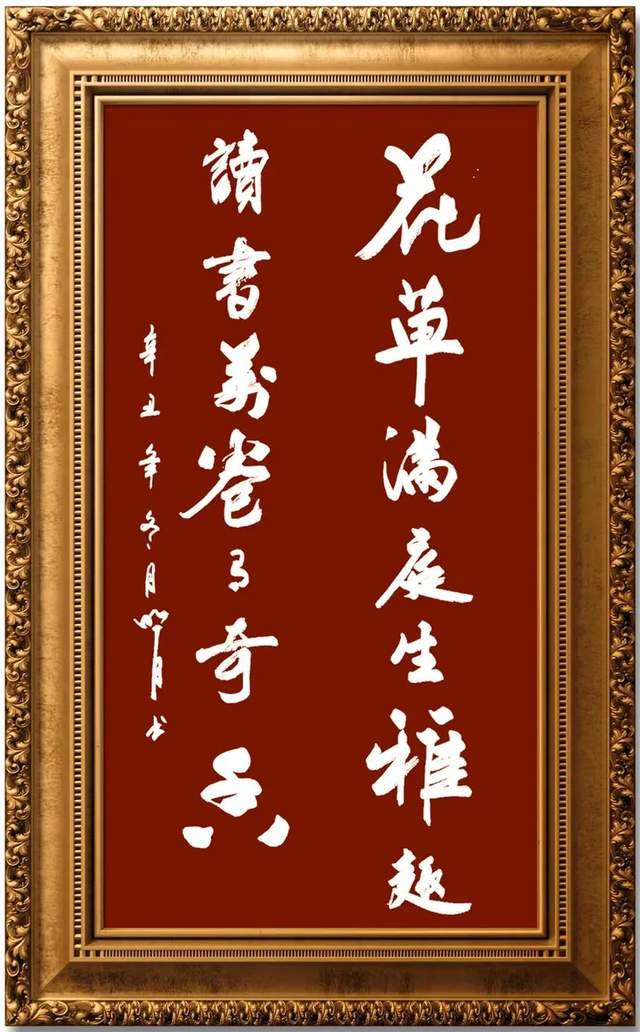 花草满庭生雅趣
讀書萬卷有奇香
辛丑年冬月
月书